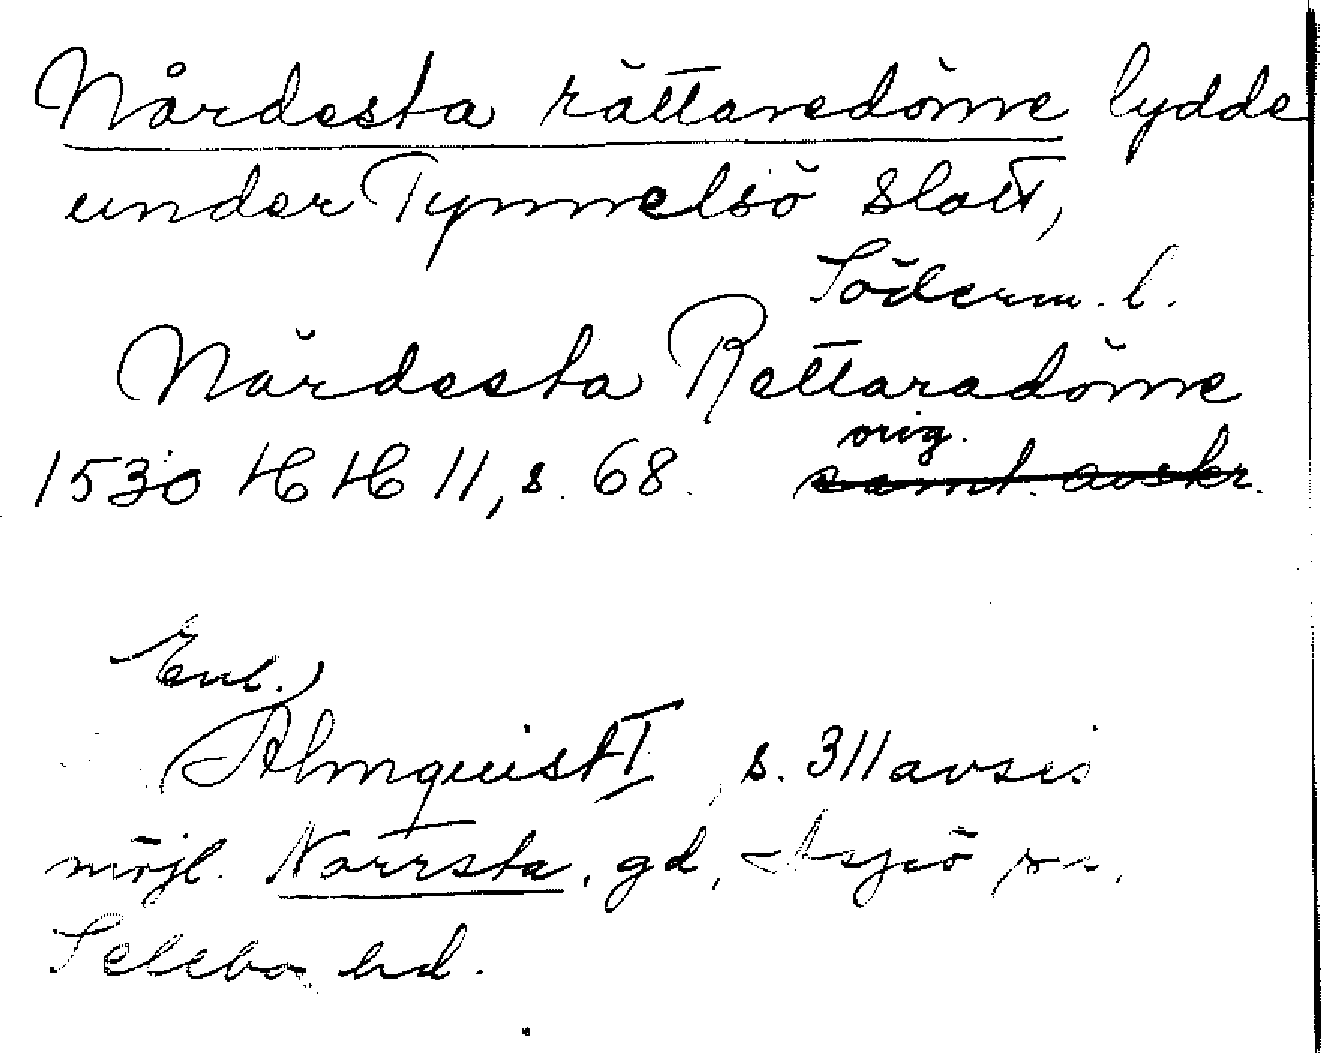 Nårdesta rättaredöme lydde
under Tynnelsö slott,
Söderm. l.
Närdesta Rettaradöme
orig.
1530 HH 11, s. 68. samt. avskr.
Enl.
Almquist I, s. 311 avses
möjl. Norrsta, gd, Aspö sn,
Selebo hd.